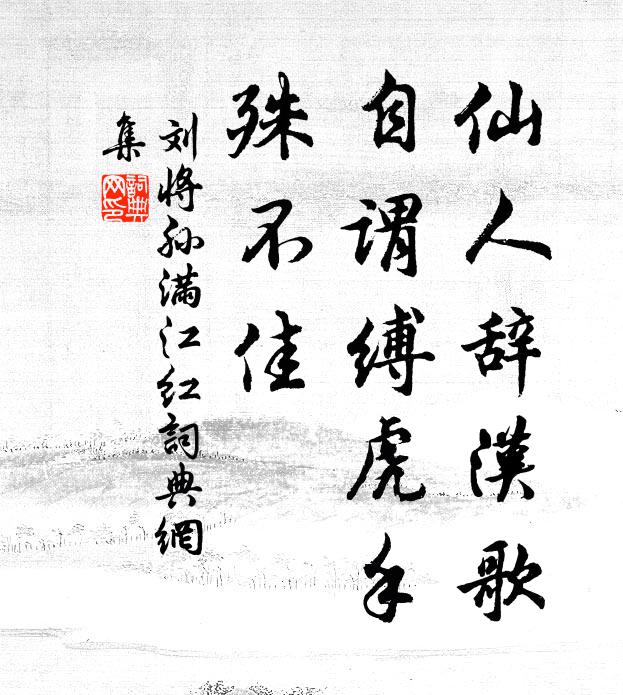 仙人辞漢歌
自謂缚虎手
殊不佳
刘将孙满江红詞典網
集
詞典
网印